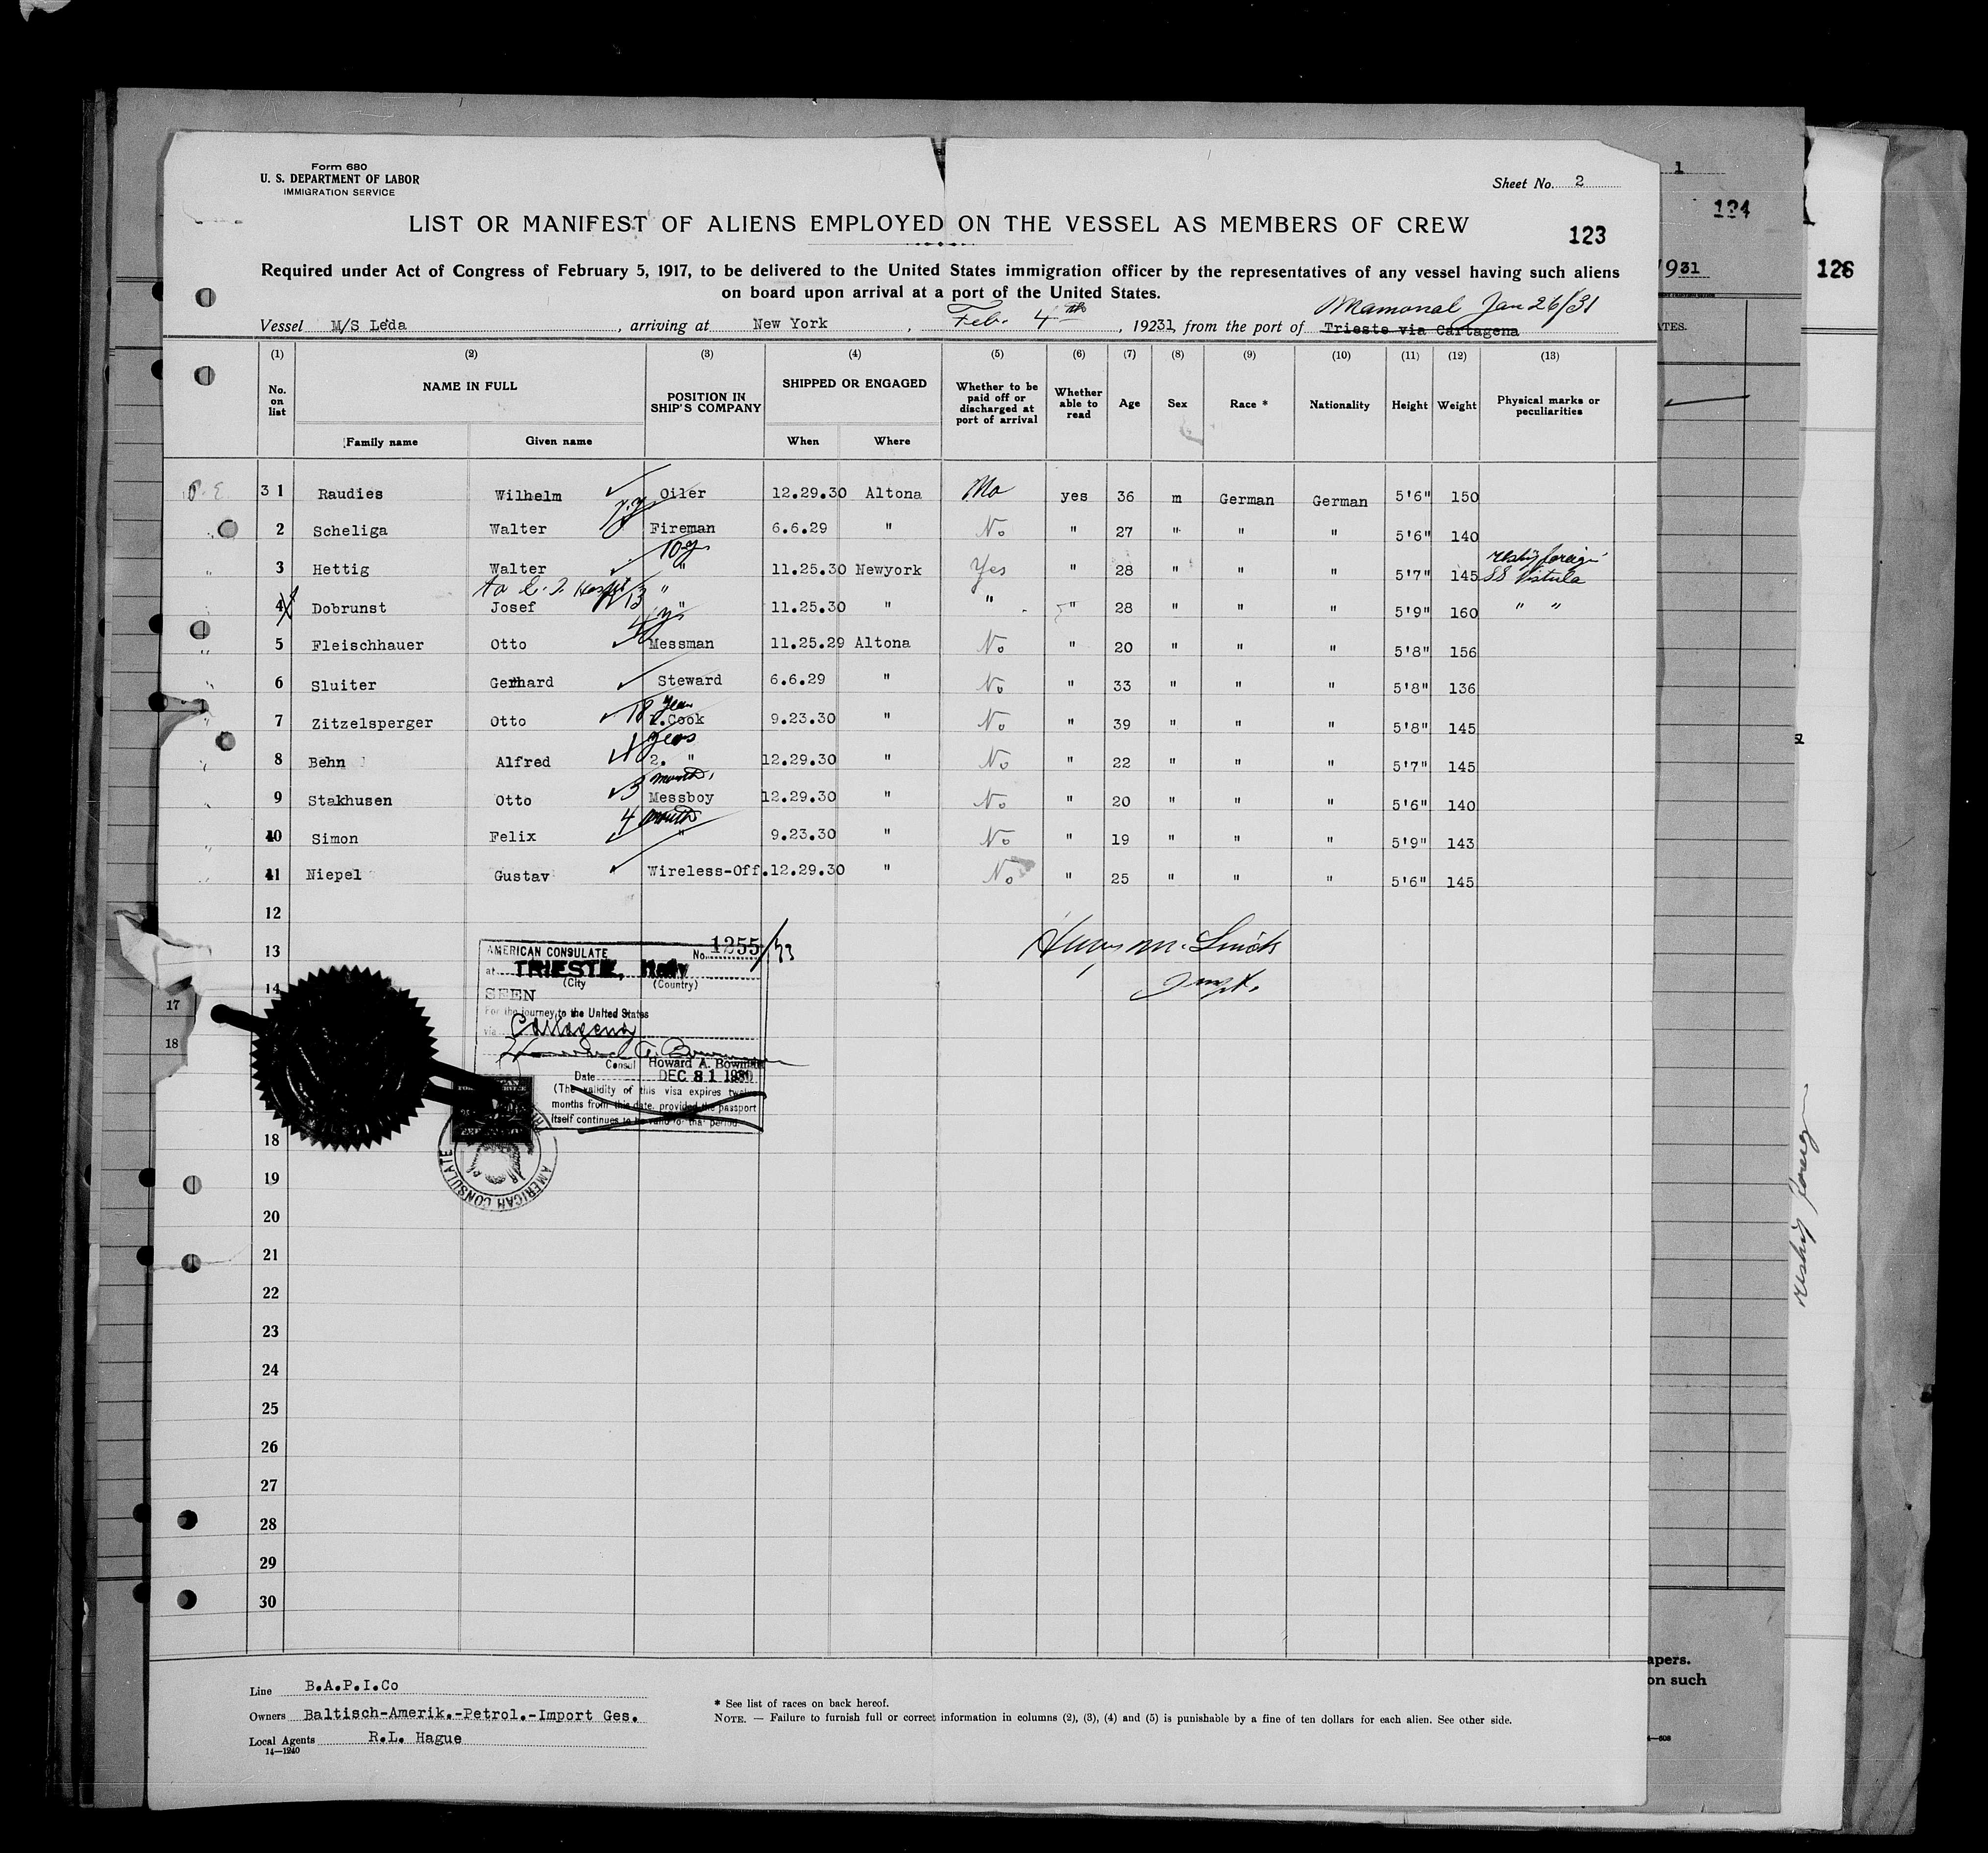 Form 680
U. S. DEPARTMENT OF LABOR
IMMIGRATION SERVICE
Sheet No. 2
LIST OR MANIFEST OF ALIENS EMPLOYED ON THE VESSEL AS MEMBERS OF CREW
123
Required under Act of Congress of February 5, 1917, to be delivered to the United States immigration officer by the representatives of any vessel having such aliens
on board upon arrival at a port of the United States.
Mamonal Jan 26/31
Vessel M/S Leda, arriving at New York, Feb. 4th, 19231, from the port of Trieste via Cartagena
(1) (2) (3) (4) (5) (6) (7) (8) (9) (10) (11) (12) (13)
No. on list NAME IN FULL POSITION IN SHIP'S COMPANY SHIPPED OR ENGAGED Whether to be paid off or discharged at port of arrival Whether able to read Age Sex Race * Nationality Height Weight Physical marks or peculiarities
Family name Given name When Where
31 Raudies Wilhelm Oiler 12.29.30 Altona No yes 36 m German German 5'6" 150
2 Scheliga Walter Fireman 6.6.29 " No " 27 " " " 5'6" 140
10 y reship foreign
3 Hettig Walter " 11.25.30 Newyork Yes " 28 " " " 5'7" 145 SS Vistula
to E. I. Hospit "
4 Dobrunst Josef " 11.25.30 " " " 28 " " " 5'9" 160 " "
5 Fleischhauer Otto Messman 11.25.29 Altona No " 20 " " " 5'8" 156
6 Sluiter Gerhard Steward 6.6.29 " No " 33 " " " 5'8" 136
18 year
7 Zitzelsperger Otto 1.Cook 9.23.30 " No " 39 " " " 5'8" 145
8 Behn Alfred 2. " 12.29.30 " No " 22 " " " 5'7" 145
3 month
9 Stakhusen Otto Messboy 12.29.30 " No " 20 " " " 5'6" 140
4 month
10 Simon Felix " 9.23.30 " No " 19 " " " 5'9" 143
11 Niepel Gustav Wireless-Off. 12.29.30 " No " 25 " " " 5'6" 145
12
13
14
AMERICAN CONSULATE No. 1255/33
at TRIESTE, Italy
(City (Country)
SEEN
For the journey to the United States
via Cartagena
Howard A. Bowman
Consul Howard A. Bowman
Date DEC 31 1930
(The validity of this visa expires twelve
months from this date, provided the passport
itself continues to be valid for that period
AMERICAN CONSULATE
Inspt.
17
18
18
19
20
21
22
23
24
25
26
27
28
29
30
Line B.A.P.I.Co
Owners Baltisch-Amerik.-Petrol.-Import Ges.
Local Agents R.L. Hague
14—1240
* See list of races on back hereof.
NOTE. — Failure to furnish full or correct information in columns (2), (3), (4) and (5) is punishable by a fine of ten dollars for each alien. See other side.
1
124
1931
126
reship foreign
apers.
on such